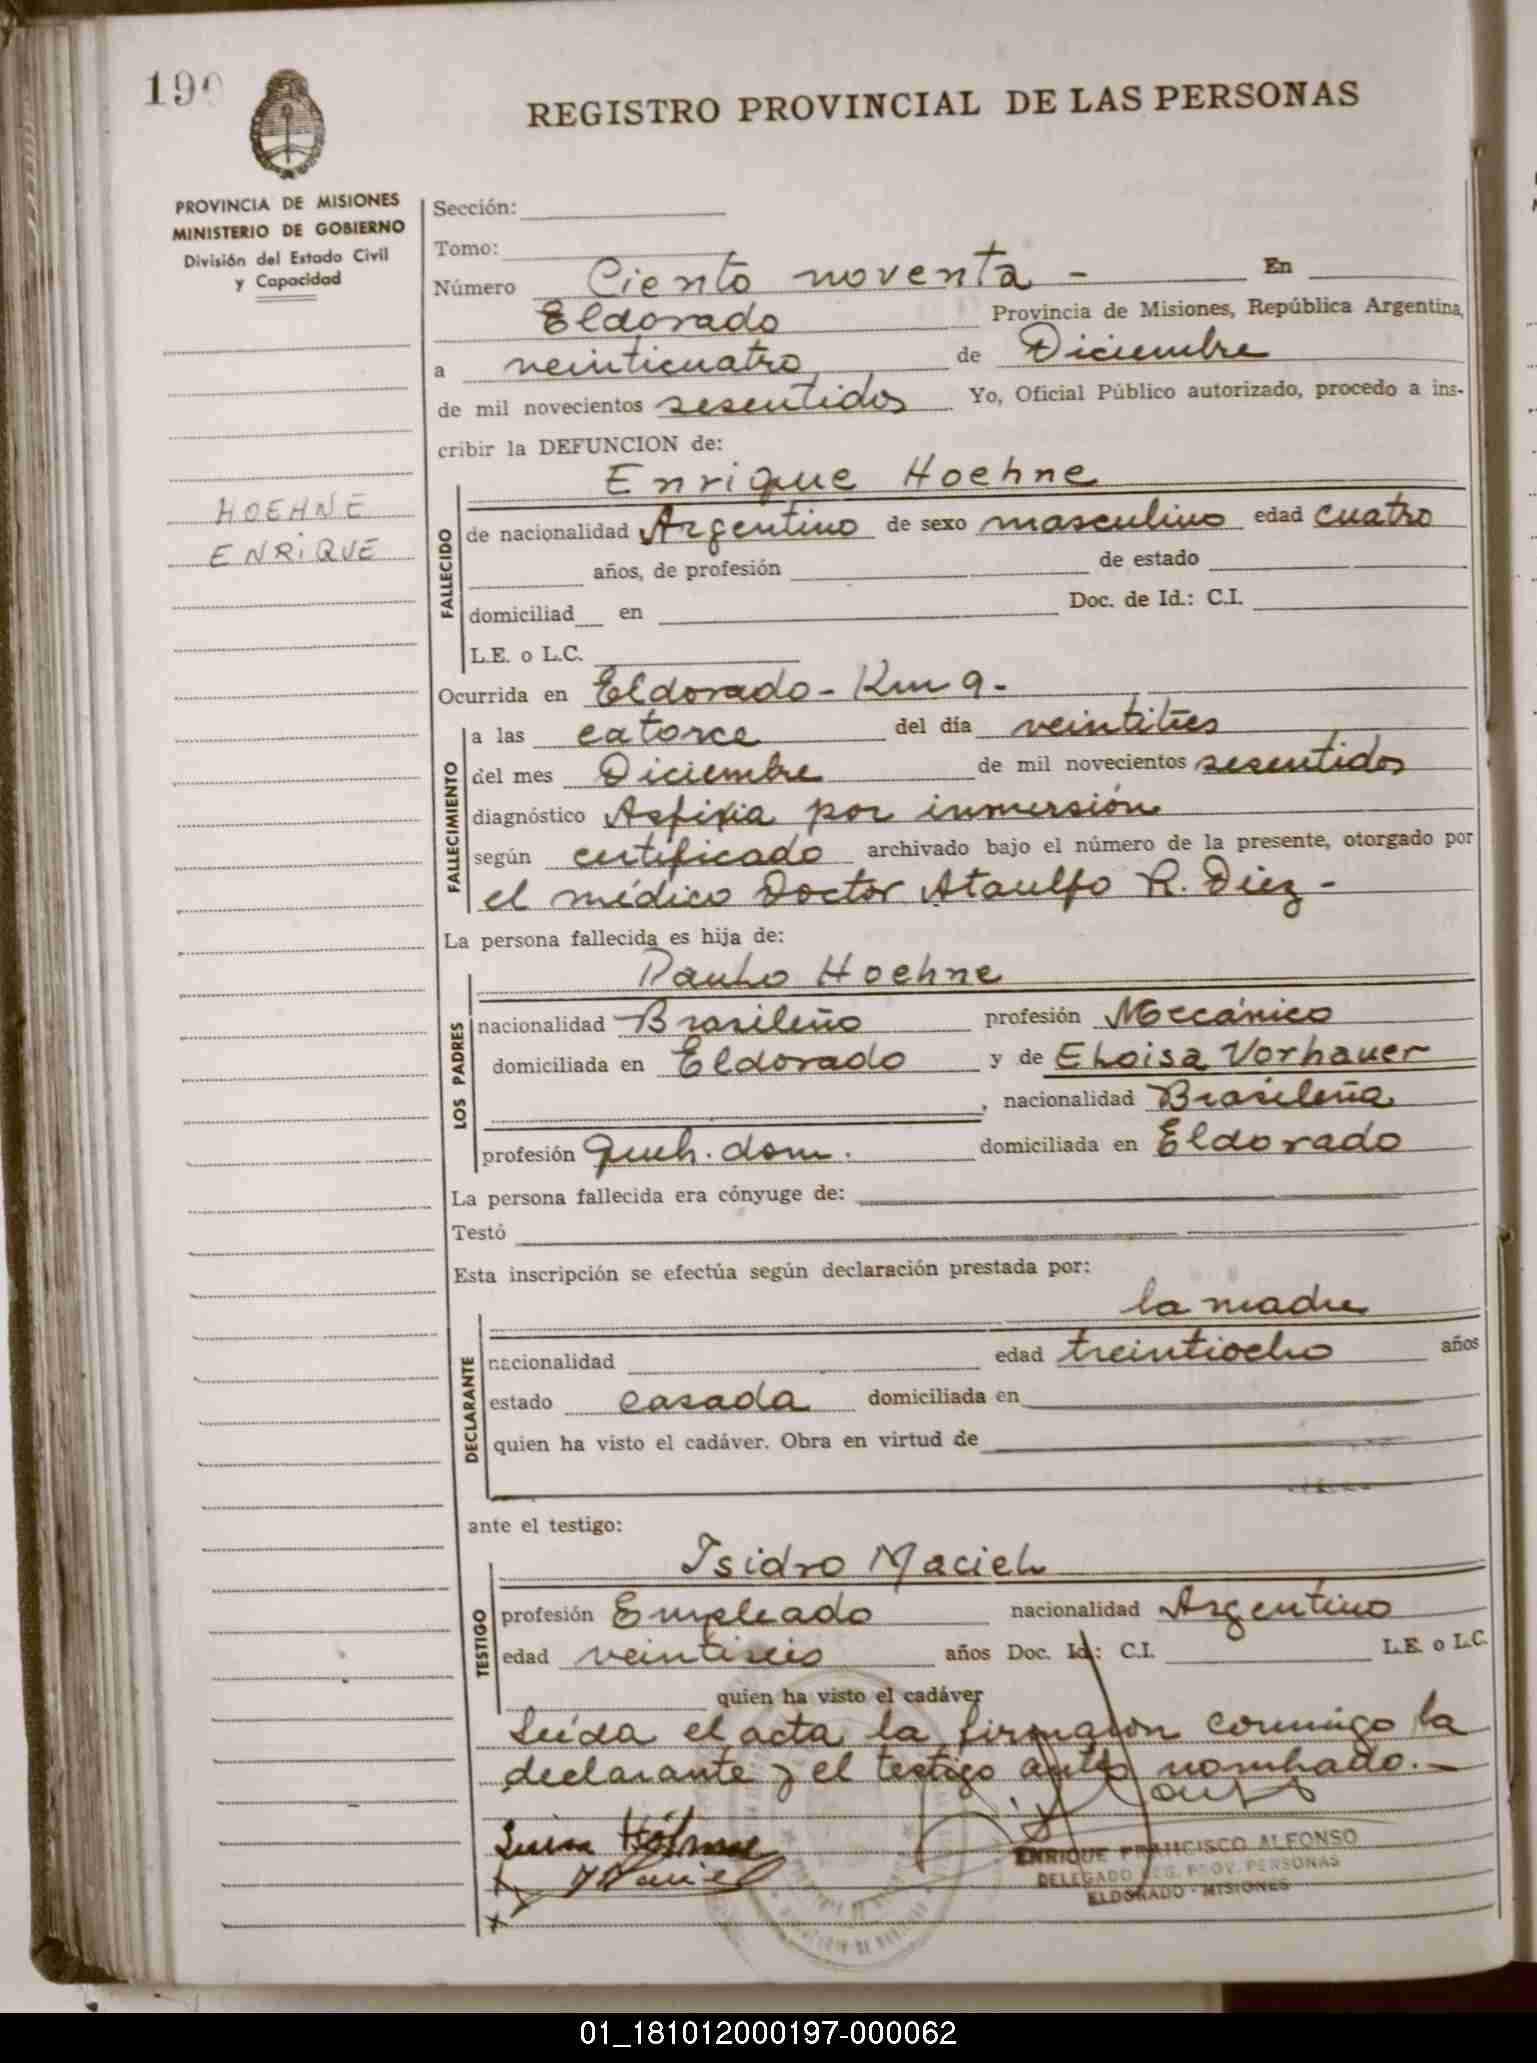 190
REGISTRO PROVINCIAL DE LAS PERSONAS
PROVINCIA DE MISIONES
MINISTERIO DE GOBIERNO
División del Estado Civil
y Capacidad
HOEHNE
ENRIQUE
Sección:
Tomo:
Número Ciento noventa - En
Eldorado Provincia de Misiones, República Argentina,
a veinticuatro de Diciembre
de mil novecientos sesentidos Yo, Oficial Público autorizado, procedo a ins-
cribir la DEFUNCION de:
FALLECIDO
Enrique Hoehne
de nacionalidad Argentino de sexo masculino edad cuatro
años, de profesión de estado
domiciliad en Doc. de Id.: C.I.
L.E. o L.C.
Ocurrida en Eldorado - Km 9 -
FALLECIMIENTO
a las catorce del día veintitres
del mes Diciembre de mil novecientos sesentidos
diagnóstico Asfixia por inmersión
según certificado archivado bajo el número de la presente, otorgado por
el médico Doctor Ataulfo R. Diez -
La persona fallecida es hija de:
LOS PADRES
Paulo Hoehne
nacionalidad Brasileño profesión Mecánico
domiciliada en Eldorado y de Eloisa Vorhauer
, nacionalidad Brasileña
profesión queh. dom. domiciliada en Eldorado
La persona fallecida era cónyuge de:
Testó
Esta inscripción se efectúa según declaración prestada por:
DECLARANTE
la madre
nacionalidad edad treintiocho años
estado casada domiciliada en
quien ha visto el cadáver. Obra en virtud de
ante el testigo:
TESTIGO
Isidro Maciel
profesión Empleado nacionalidad Argentino
edad veintiseis años Doc. Id.: C.I. L.E. o L.C.
quien ha visto el cadáver
Leída el acta la firmaron conmigo la
declarante y el testigo antes nombrado.-
ENRIQUE FRANCISCO ALFONSO
DELEGADO REG. PROV. PERSONAS
ELDORADO - MISIONES
01_181012000197-000062